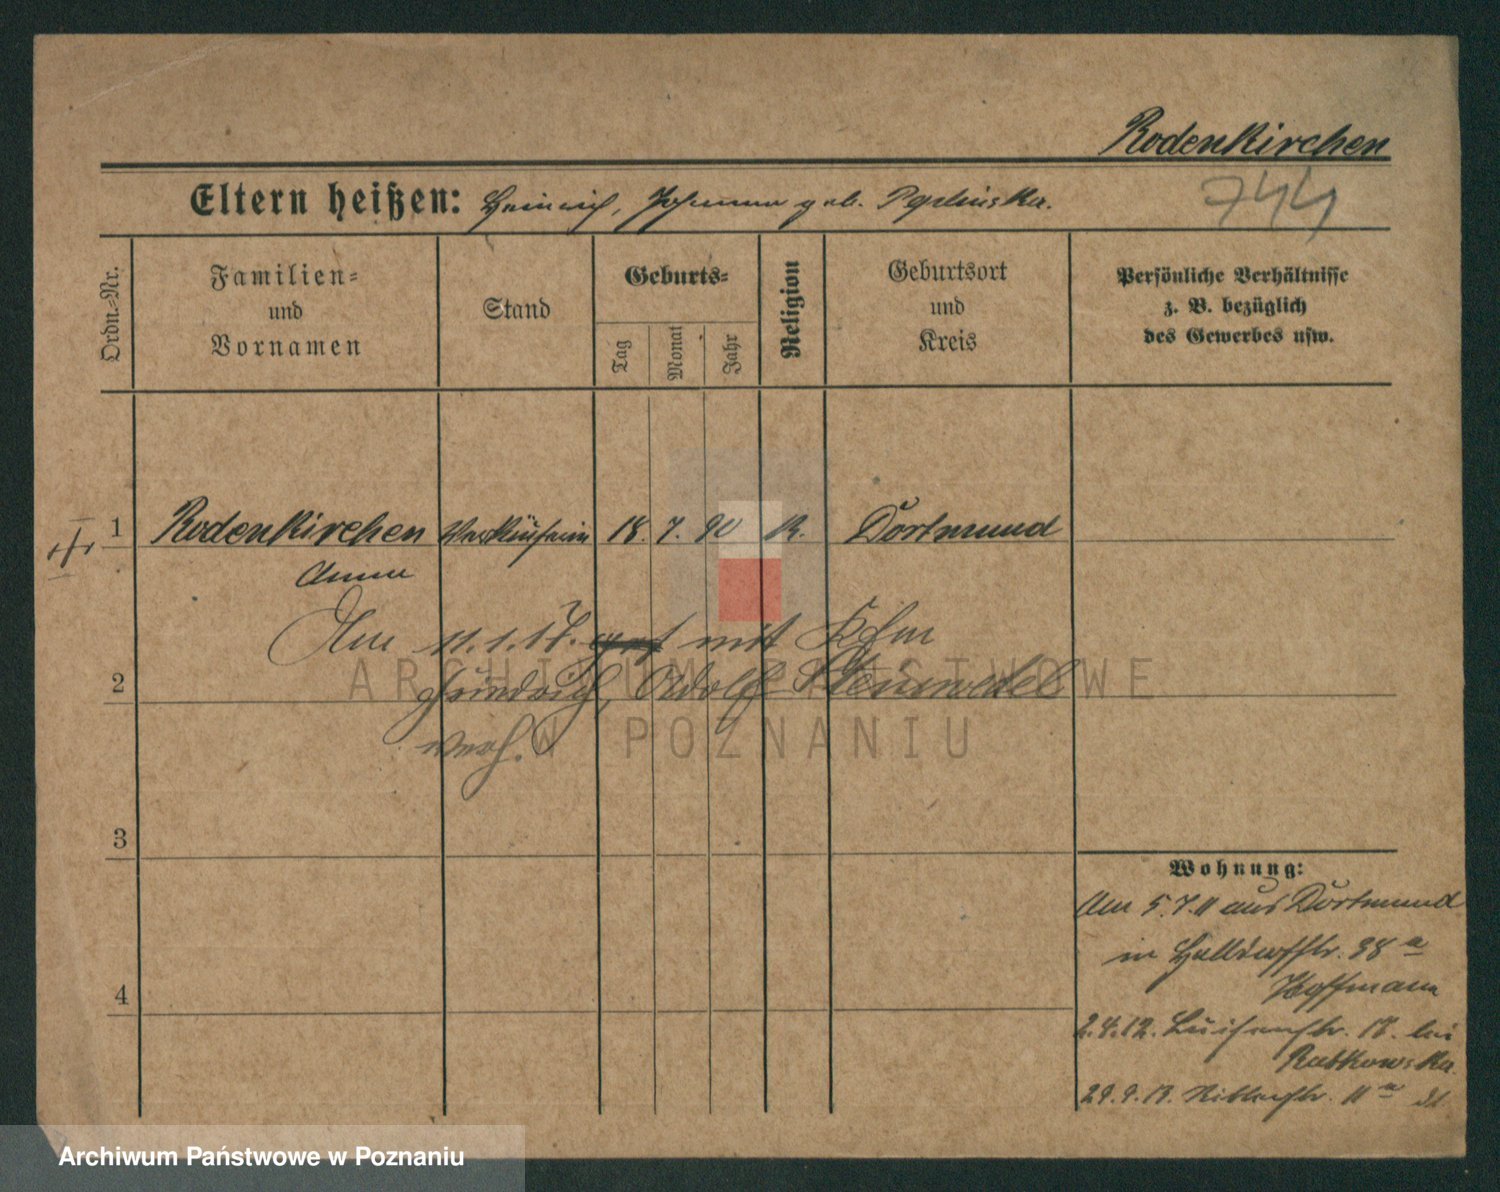 Rodenkirchen
Eltern heißen: Heinrich, Johanna geb.
744
Ordn.=Nr.
Familien=
und
Vornamen
Stand
Geburts=
Tag
Monat
Jahr
Religion
Geburtsort
und
Kreis
Persönliche Verhältnisse
z. B. bezüglich
des Gewerbes usw.
1 Rodenkirchen Verkäuferin 18. 7. 90 K. Dortmund
Anna
Am 11.1.17. mit Kfm
2
Friedrich, Adolf Steinwedel
verh.
3
4
Wohnung:
Am 5.7.11 aus Dortmund
in 38 a
Hoffmann
2.4.12. Luisenstr. 17. bei
Ratkowska
29.9.13. Ritterstr. 11 a
ARCHIWUM PAŃSTWOWE
W POZNANIU
Archiwum Państwowe w Poznaniu